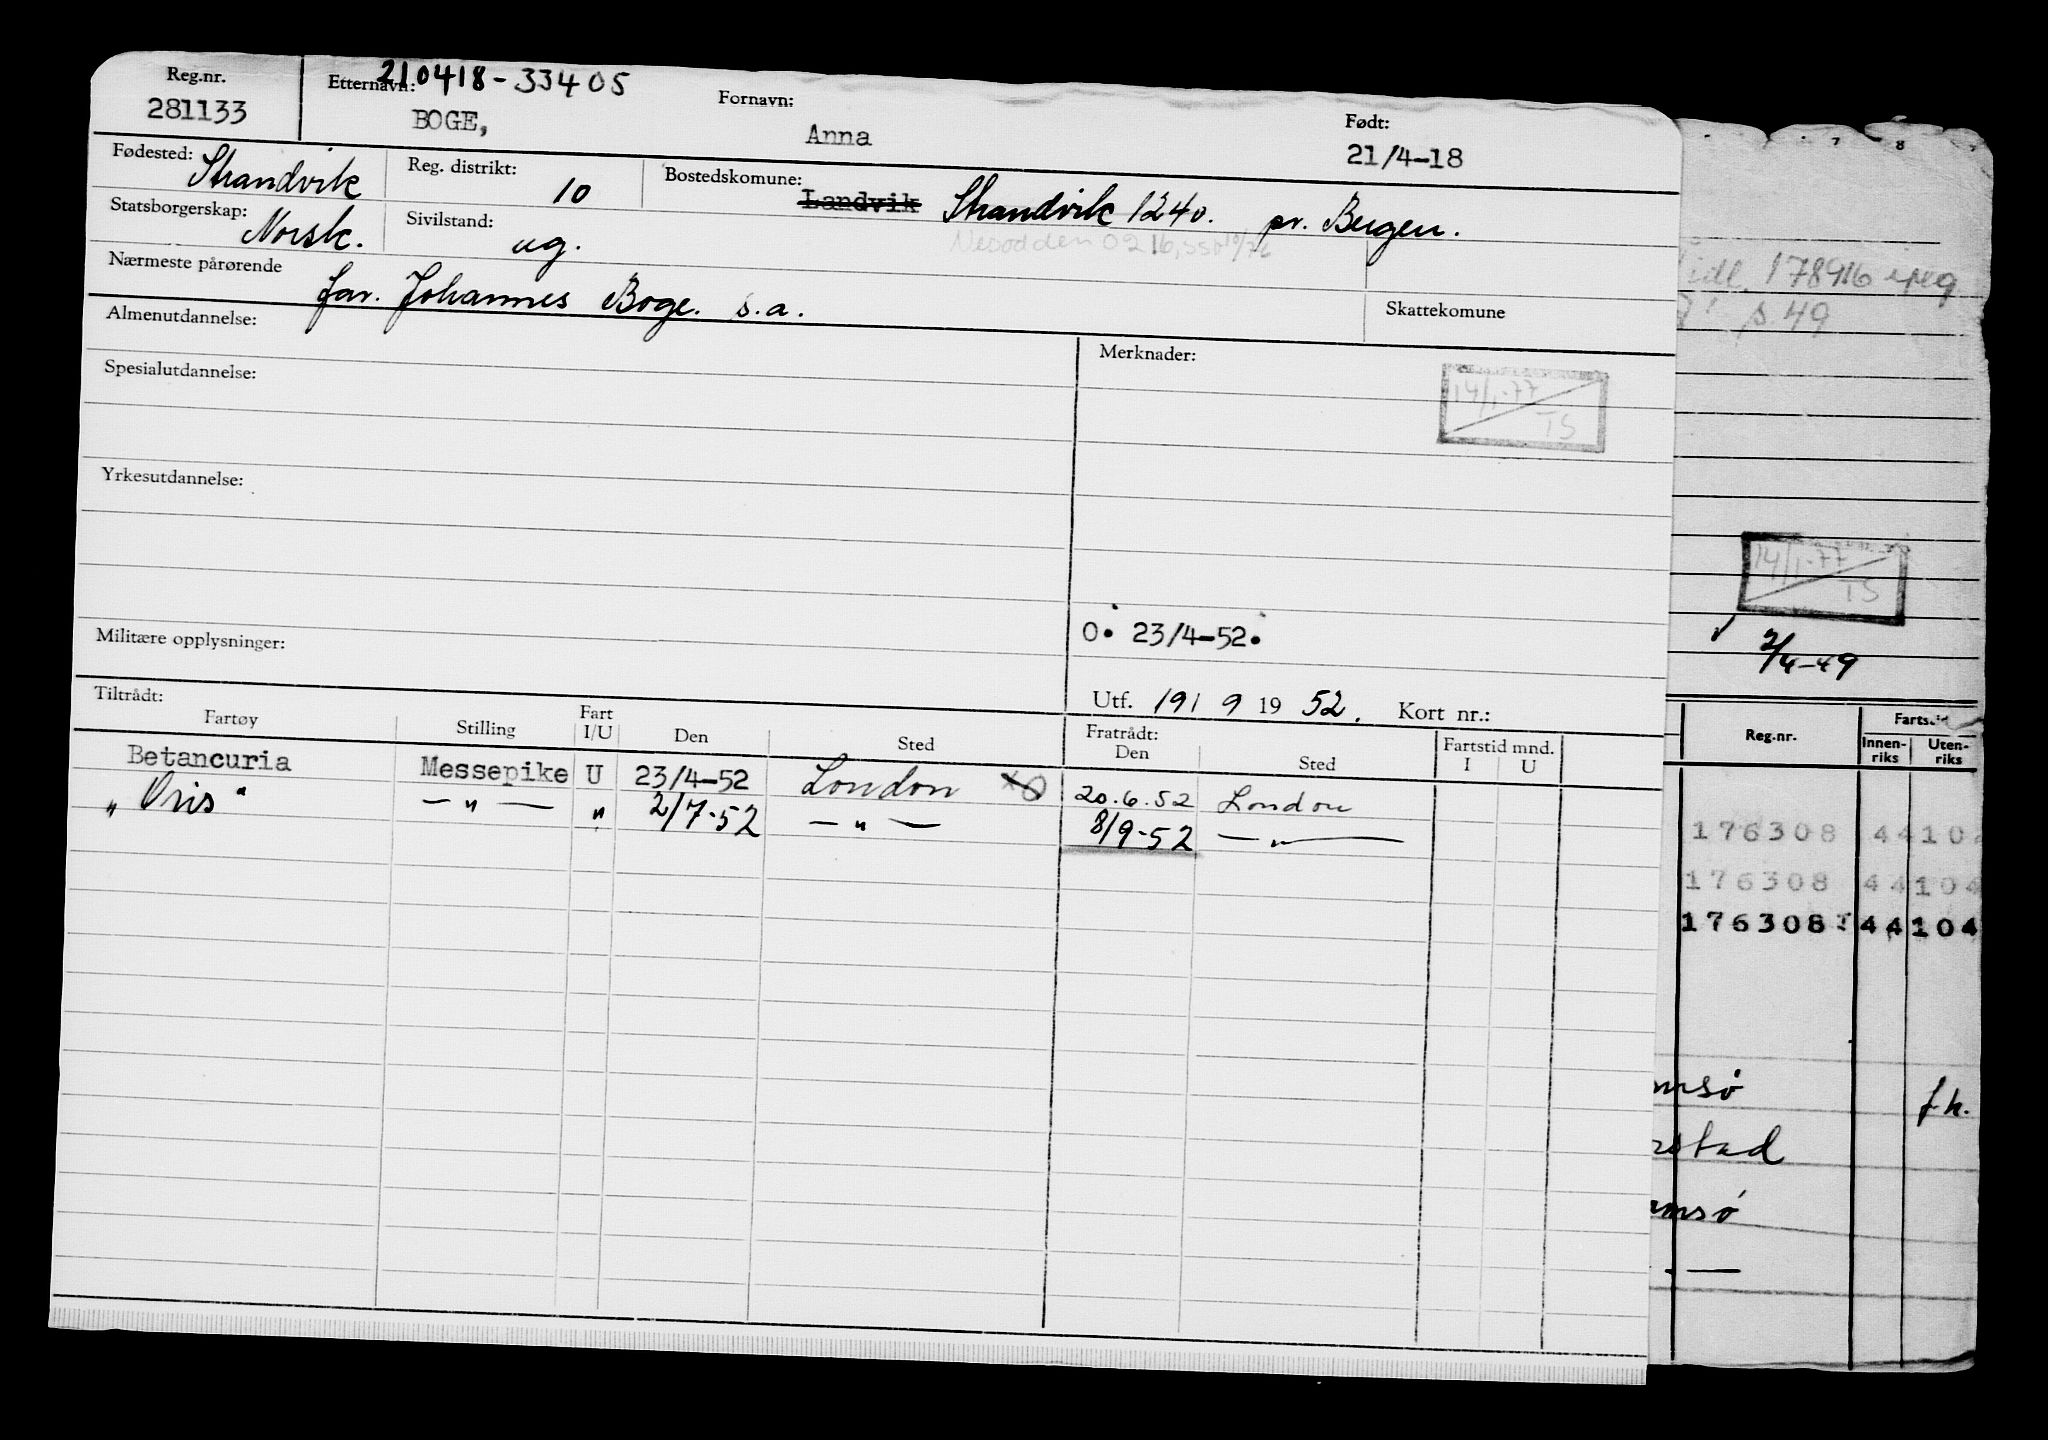 Reg.nr. Etternavn: 210418-33405 Fornavn: Født:
281133 BOGE, Anna 21/4-18
Fødested: Strandvik Reg. distrikt: 10 Bostedskomune: Landvik Strandvik 1240. pr. Bergen.
Statsborgerskap: Norsk. Sivilstand: ug. Nesodden 0216,
Nærmeste pårørende far. Johannes Boge. s.a. Skattekomune
Almenutdannelse: Merknader:
Spesialutdannelse: 14/1-77 TS
Yrkesutdannelse:
O. 23/4-52.
Militære opplysninger:
Tiltrådt: Utf. 19/ 9 19 52. Kort nr.:
Fartøy Stilling Fart I/U Den Sted Fratrådt: Den Sted Fartstid mnd. I U
Betancuria Messepike U 23/4-52 London 20.6.52 London
"Oris" — " — " 2/7-52 — " — 8/9-52 — " —
7 8
idl. 178916
s. 49
14/1-77 TS
2/4-49
Reg.nr. Innen-riks Uten-riks
176308 44 104
176308 44 104
176308 44 104
msø f.h.
rstad
msø